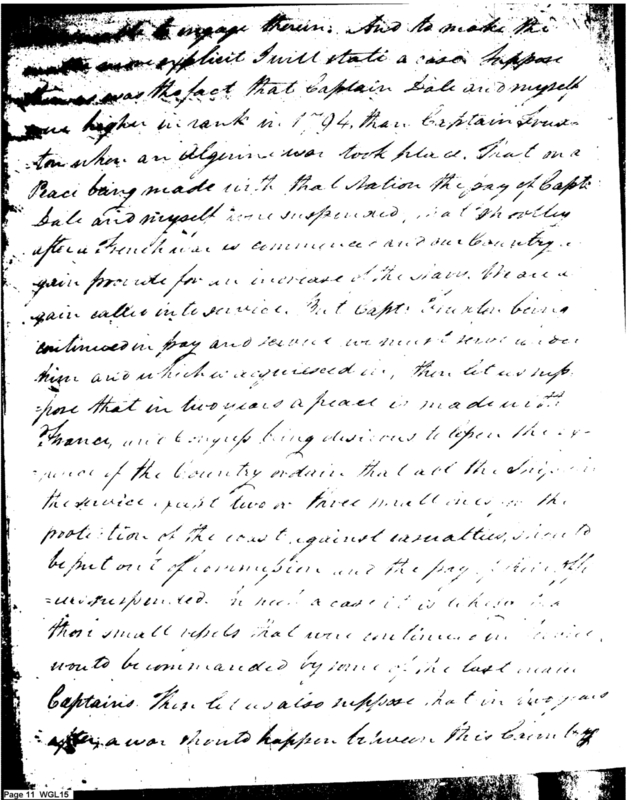 to engage therein. And to make the
more explicit I will state a case. Suppose
as was the fact that Captain Dale and myself
were higher in rank in 1794, than Captain Trux-
ton when an Algerine war took place. That on a
Peace being made with that Nation the pay of Capt:
Dale and myself were suspended, that shortly
after a French war is commenced and our Country a-
gain provide for an increase of the Navy. We are a-
gain called into service. But Capt: Truxton being
continued in pay and service we must serve under
him and which is acquiesced in, then let us sup-
=pose that in two years a peace is made with
France, and Congress being desirous to lessen the ex-
=pence of the Country ordain that all the Ships in
the service, except two or three small ones for the
protection of the coast against casualties, should
be put out of commission and the pay of their offi-
=cers suspended. In such a case it is likely that
those small vessels that were continued in service,
would be commanded by some of the last made
Captains. Then let us also suppose that in two years
after a war should happen between this Country
Page 11 WGL15